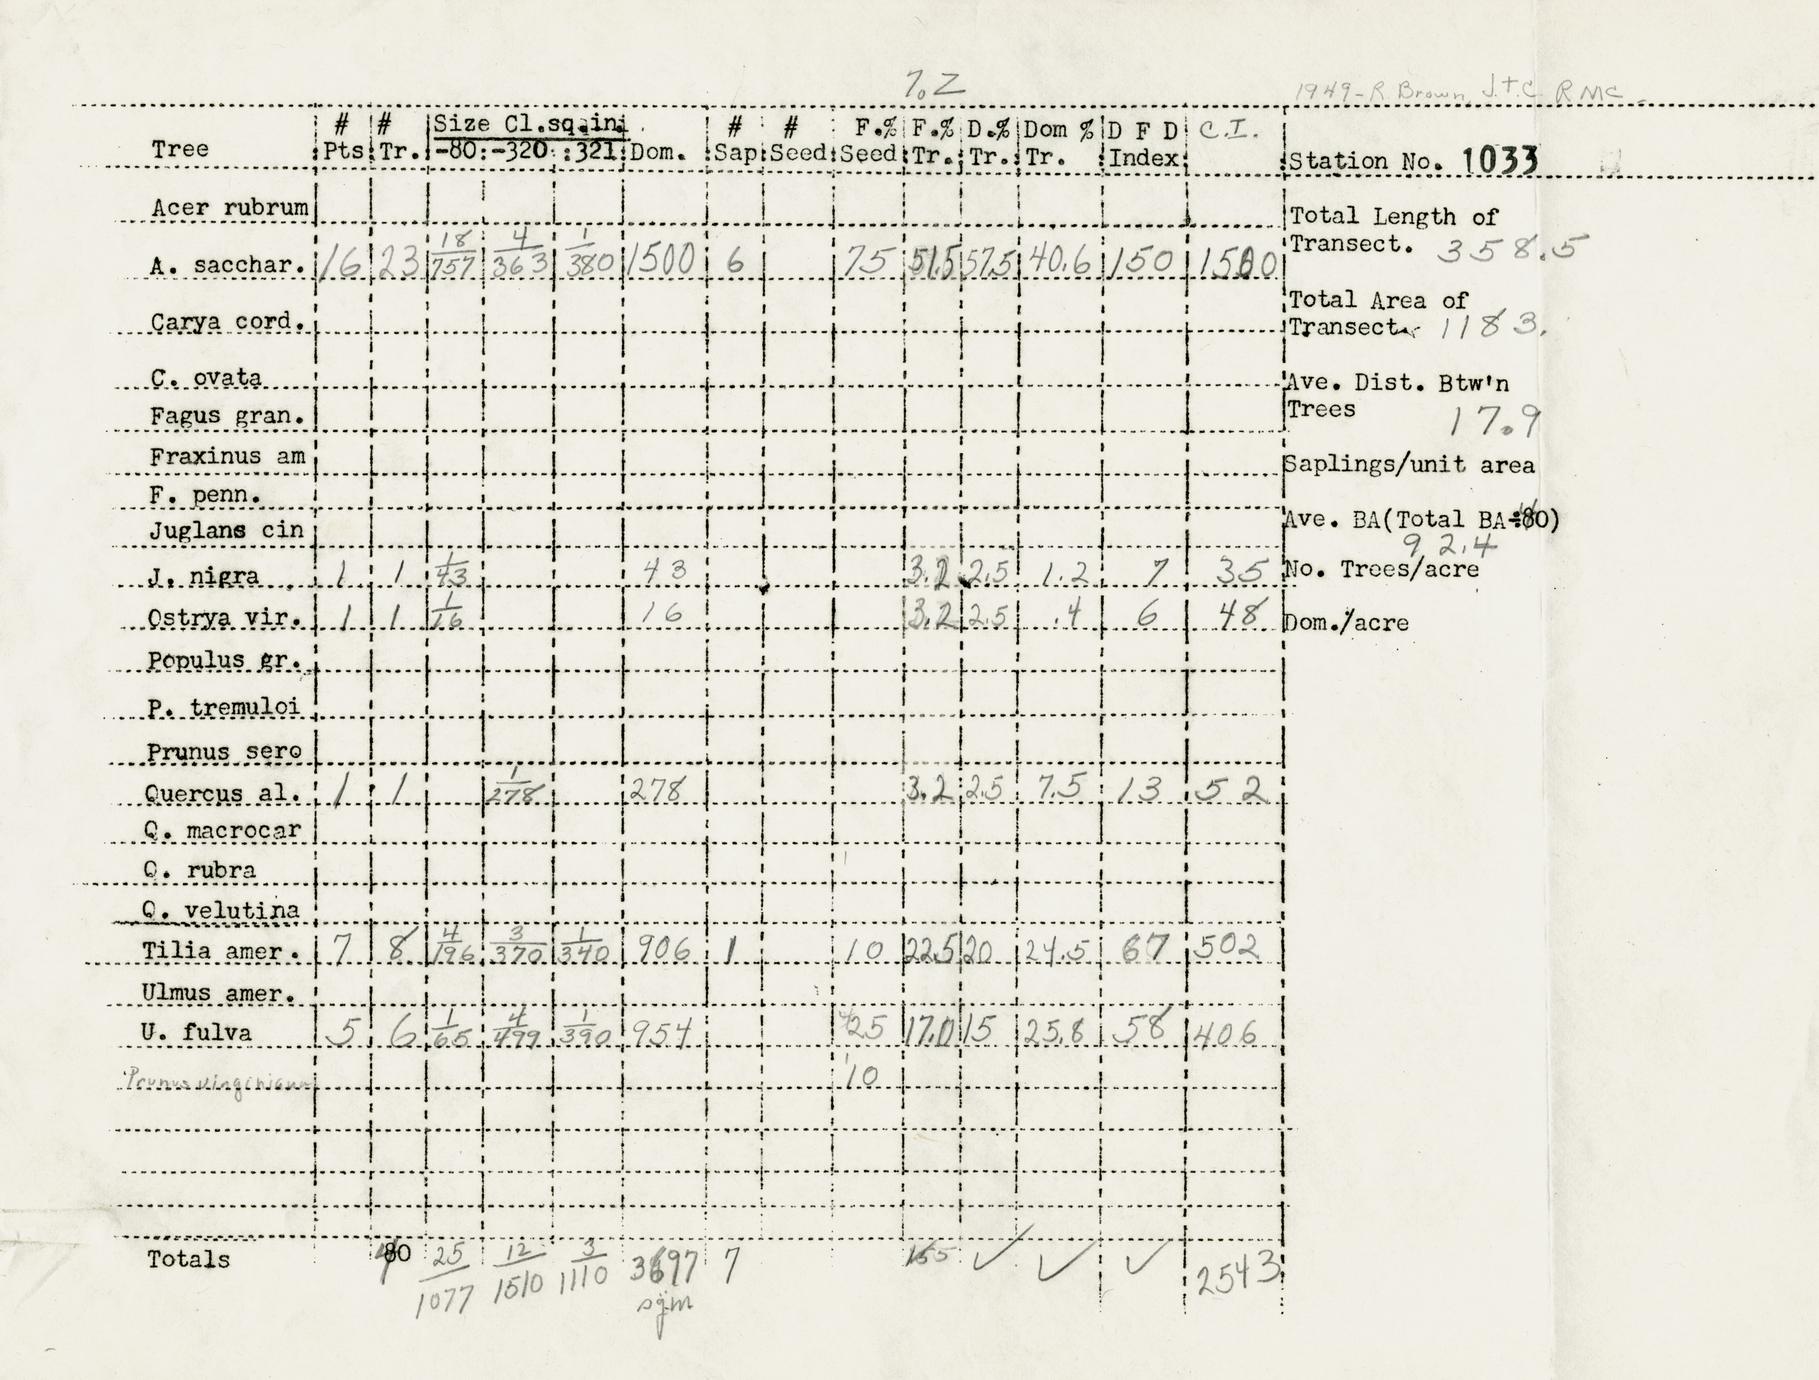 7.2
1949-R. Brown, J.T.C. RMC
Tree # Pts # Tr. Size Cl.sq.in. -80 -320 321 Dom. # Sap # Seed F.% Seed F.% Tr. D.% Tr. Dom % Tr. D F D Index C.I.
Station No. 1033
Acer rubrum
A. sacchar. 16 23 18/757 4/363 1/380 1500 6 75 51.5 57.5 40.6 150 1500
Carya cord.
C. ovata
Fagus gran.
Fraxinus am
F. penn.
Juglans cin
J. nigra 1 1 1/43 43 3.2 2.5 1.2 7 35
Ostrya vir. 1 1 1/16 16 3.2 2.5 .4 6 48
Populus gr.
P. tremuloi
Prunus sero
Quercus al. 1 1 1/278 278 3.2 2.5 7.5 13 52
Q. macrocar
Q. rubra
Q. velutina
Tilia amer. 7 8 4/196 3/370 1/340 906 1 10 22.5 20 24.5 67 502
Ulmus amer.
U. fulva 5 6 1/65 4/499 1/390 954 25 17.0 15 25.8 58 406
Prunus virginiana 10
Totals 40 25/1077 12/1510 3/1110 3697 7 155 ✓ ✓ ✓ 2543
Total Length of
Transect. 358.5
Total Area of
Transect. 1183.
Ave. Dist. Btw'n
Trees 17.9
Saplings/unit area
Ave. BA(Total BA÷40)
92.4
No. Trees/acre
Dom./acre